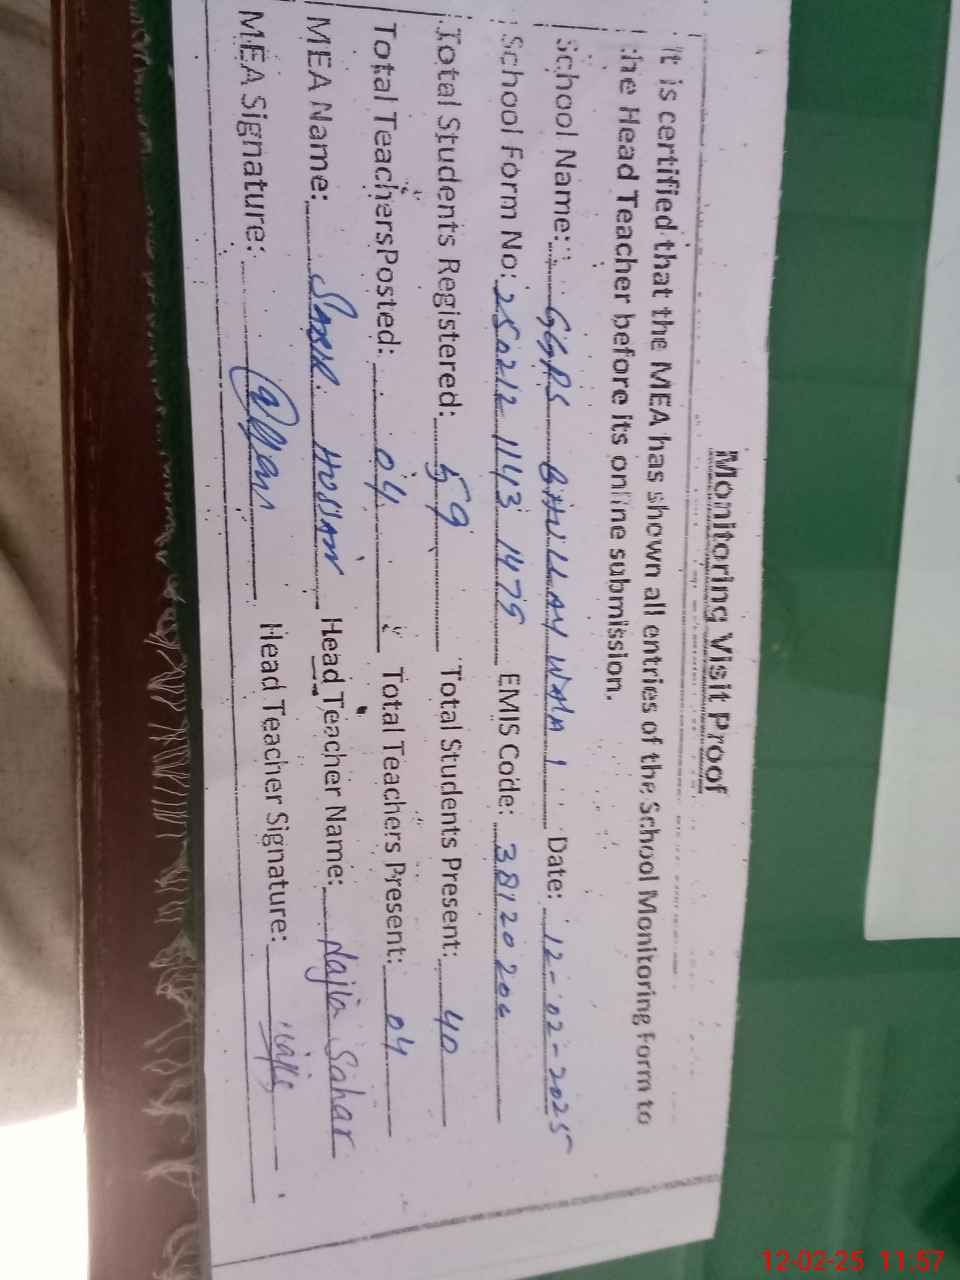 Monitoring Visit Proof
It is certified that the MEA has shown all entries of the School Monitoring Form to
the Head Teacher before its online submission.
School Name: GGPS BHULLAY WALA 1 Date: 12-02-2025
School Form No: 250212 1143 1479 EMIS Code: 38120206
Total Students Registered: 59 Total Students Present: 40
Total TeachersPosted: 04 Total Teachers Present: 04
MEA Name: SABIR HUSSAIN Head Teacher Name: Najia Sahar
MEA Signature: Head Teacher Signature:
12-02-25 11:57